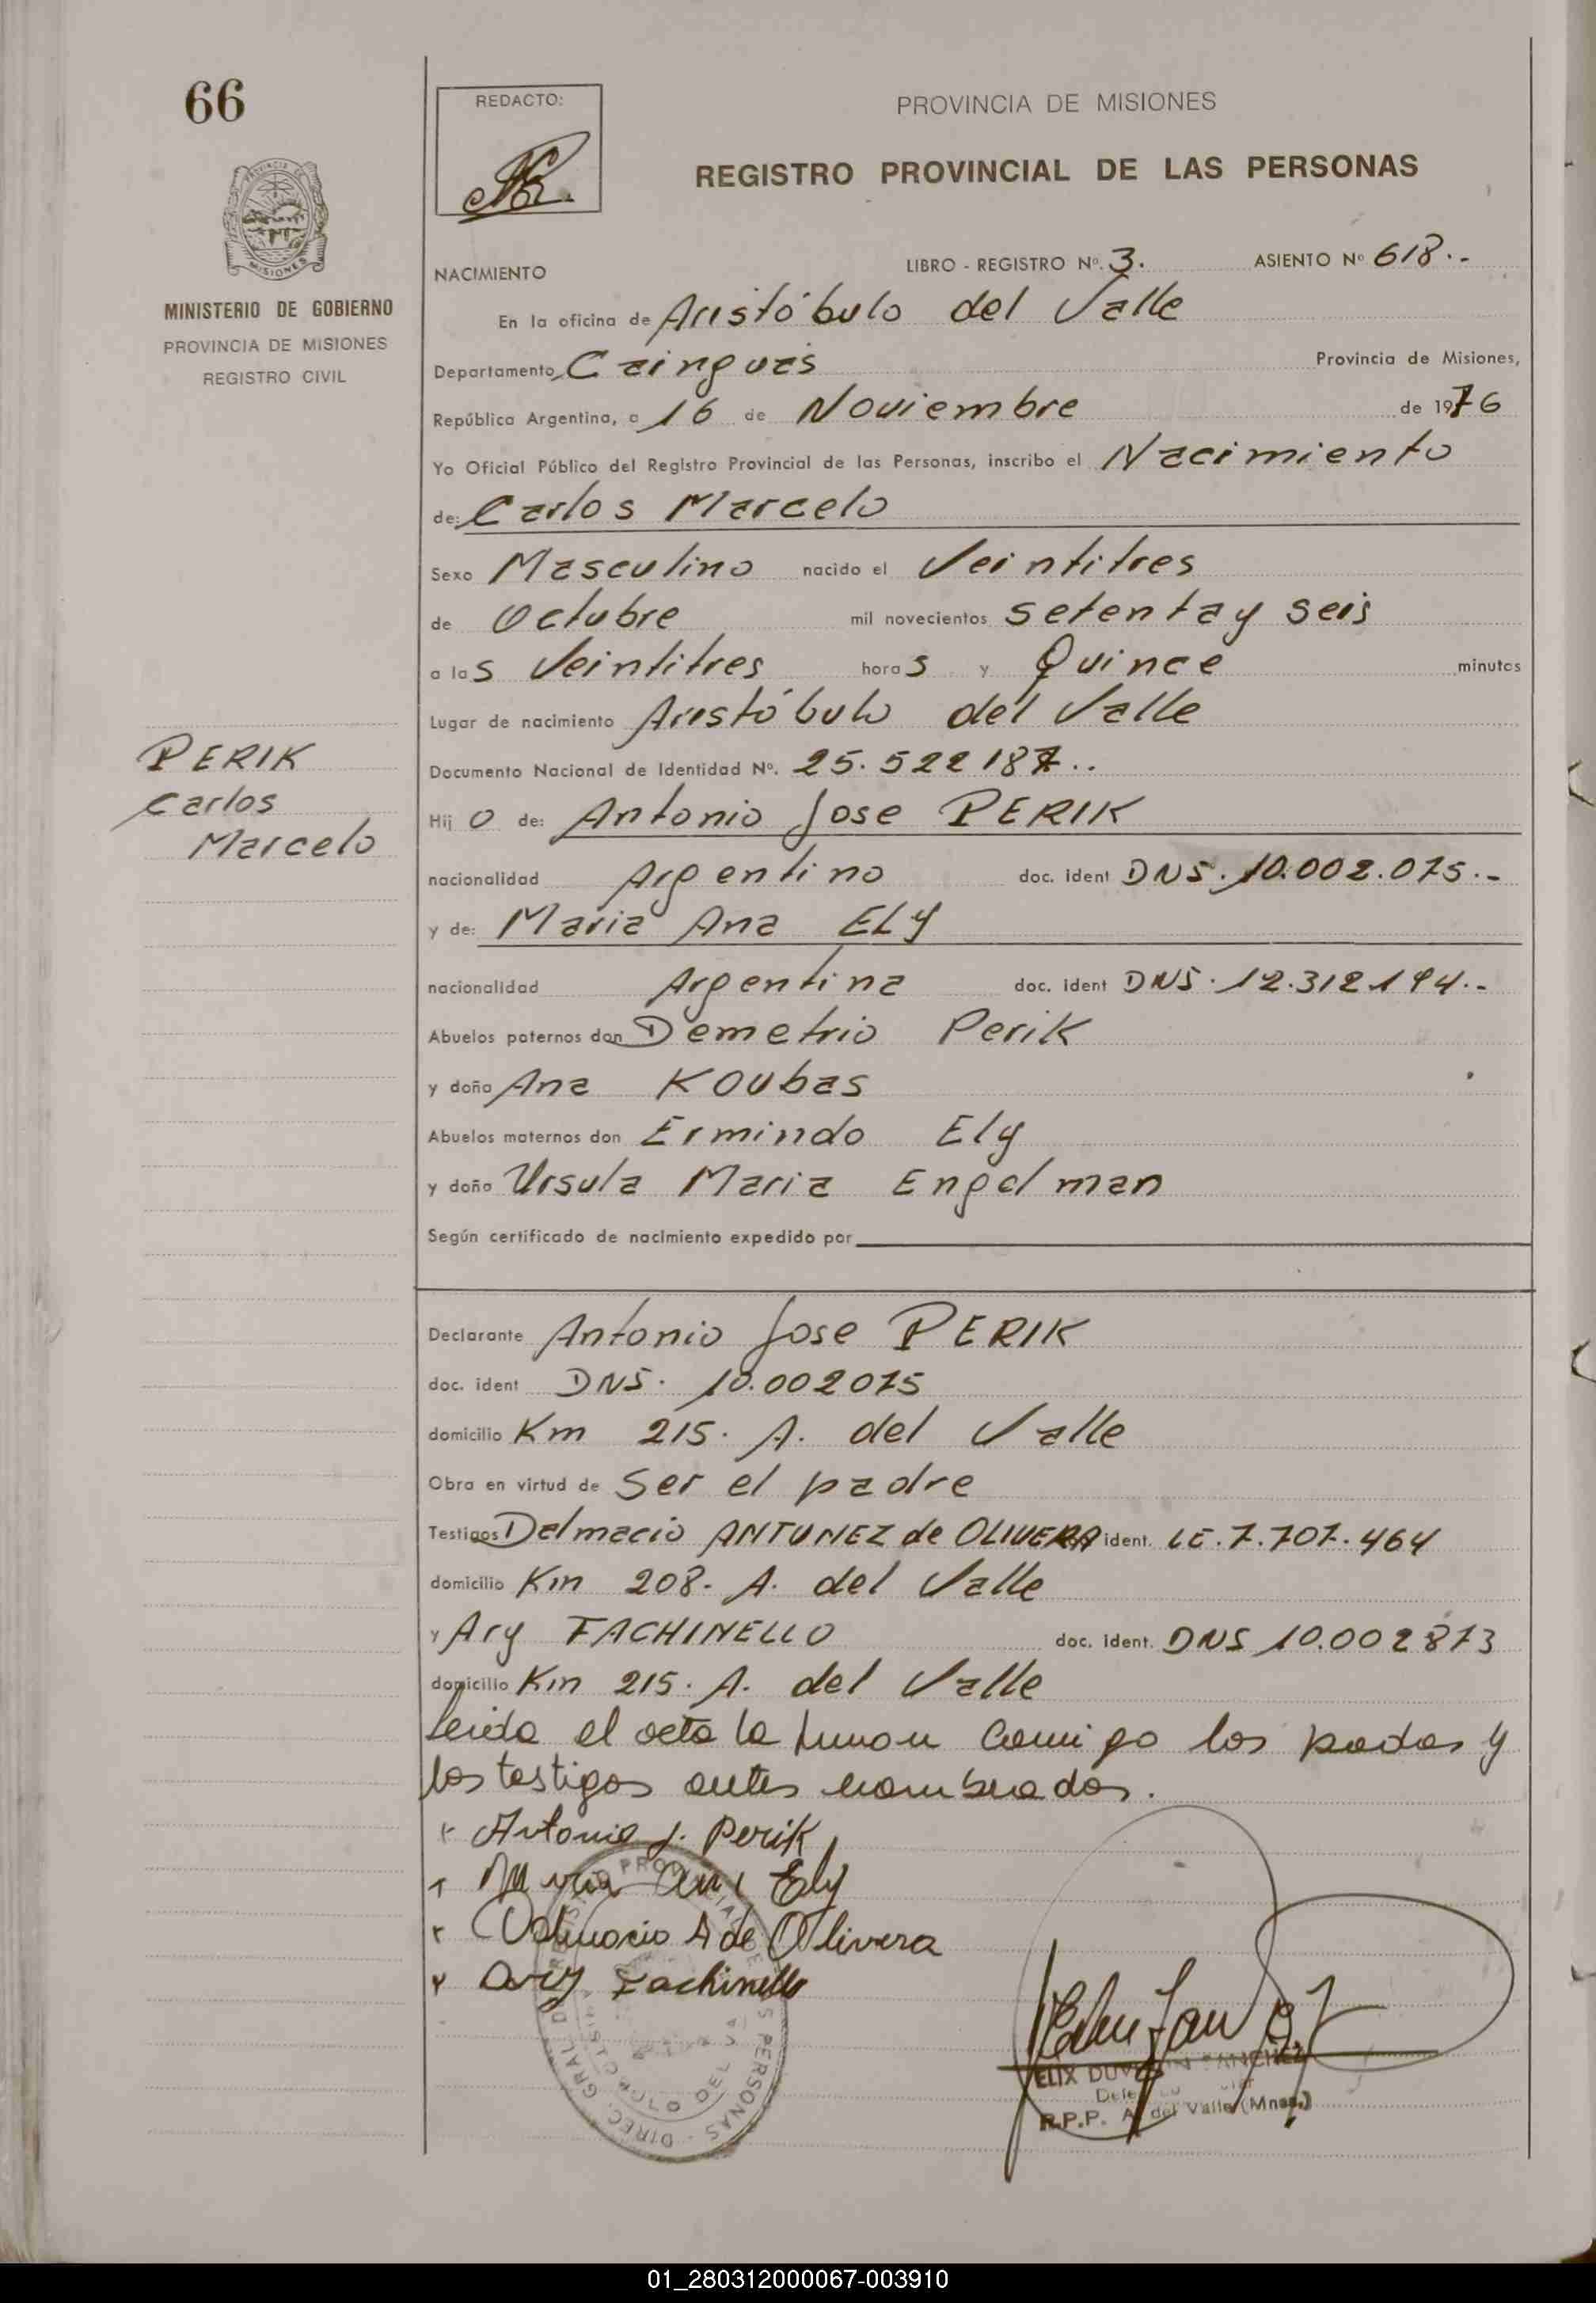 66
REDACTO:
PROVINCIA DE MISIONES
REGISTRO PROVINCIAL DE LAS PERSONAS
PROVINCIA DE
MISIONES
MINISTERIO DE GOBIERNO
PROVINCIA DE MISIONES
REGISTRO CIVIL
NACIMIENTO LIBRO - REGISTRO Nº. 3. ASIENTO Nº 618.-
En la oficina de Aristóbulo del Valle
Departamento Cainguas Provincia de Misiones,
República Argentina, a 16 de Noviembre de 1976
Yo Oficial Público del Registro Provincial de las Personas, inscribo el Nacimiento
de: Carlos Marcelo
Sexo Masculino nacido el Veintitres
de Octubre mil novecientos setenta y seis
a las Veintitres horas y Quince minutos
Lugar de nacimiento Aristóbulo del Valle
PERIK
Carlos
Marcelo
Documento Nacional de Identidad Nº. 25.522187..
Hijo de: Antonio Jose PERIK
nacionalidad Argentino doc. ident DNS. 10.002.075.-
y de: Maria Ana ELY
nacionalidad Argentina doc. ident DNS. 12.312.194.-
Abuelos paternos don Demetrio Perik
y doña Ana KOUbas
Abuelos maternos don Ermindo Ely
y doña Ursula Maria Engelman
Según certificado de nacimiento expedido por
Declarante Antonio Jose PERIK
doc. ident DNS. 10.002075
domicilio Km 215. A. del Valle
Obra en virtud de Ser el padre
Testigos Dalmacio ANTUNEZ de OLIVERA ident. LE.7.707.464
domicilio Km 208. A. del Valle
y Ary FACHINELLO doc. ident. DNS 10.002873
domicilio Km 215. A. del Valle
Leida el acta la firman conmigo los padres y
los testigos antes nombrados.
Antonio J. Perik
Maria Ana Ely
Dalmacio A de Olivera
Ary Fachinello
ELIX DUV SANCHEZ
R.P.P. A. del Valle (Mnes.)
01_280312000067-003910